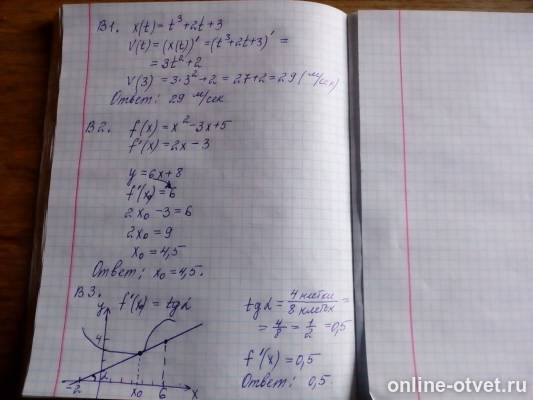 В1. x(t) = t³+2t+3
V(t) = (x(t))' = (t³+2t+3)' =
= 3t²+2
V(3) = 3·3²+2 = 27+2 = 29 (м/сек)
Ответ: 29 м/сек
В2. f(x) = x²-3x+5
f'(x) = 2x-3
y = 6x+8
f'(x₀) = 6
2x₀ -3 = 6
2x₀ = 9
x₀ = 4,5
Ответ: x₀ = 4,5.
В3. f'(x₀) = tg α
y
4
-2
α
x₀
6
x
tg α = 4 клетки / 8 клеток =
= 4/8 = 1/2 = 0,5
f'(x) = 0,5
Ответ: 0,5.
online-otvet.ru